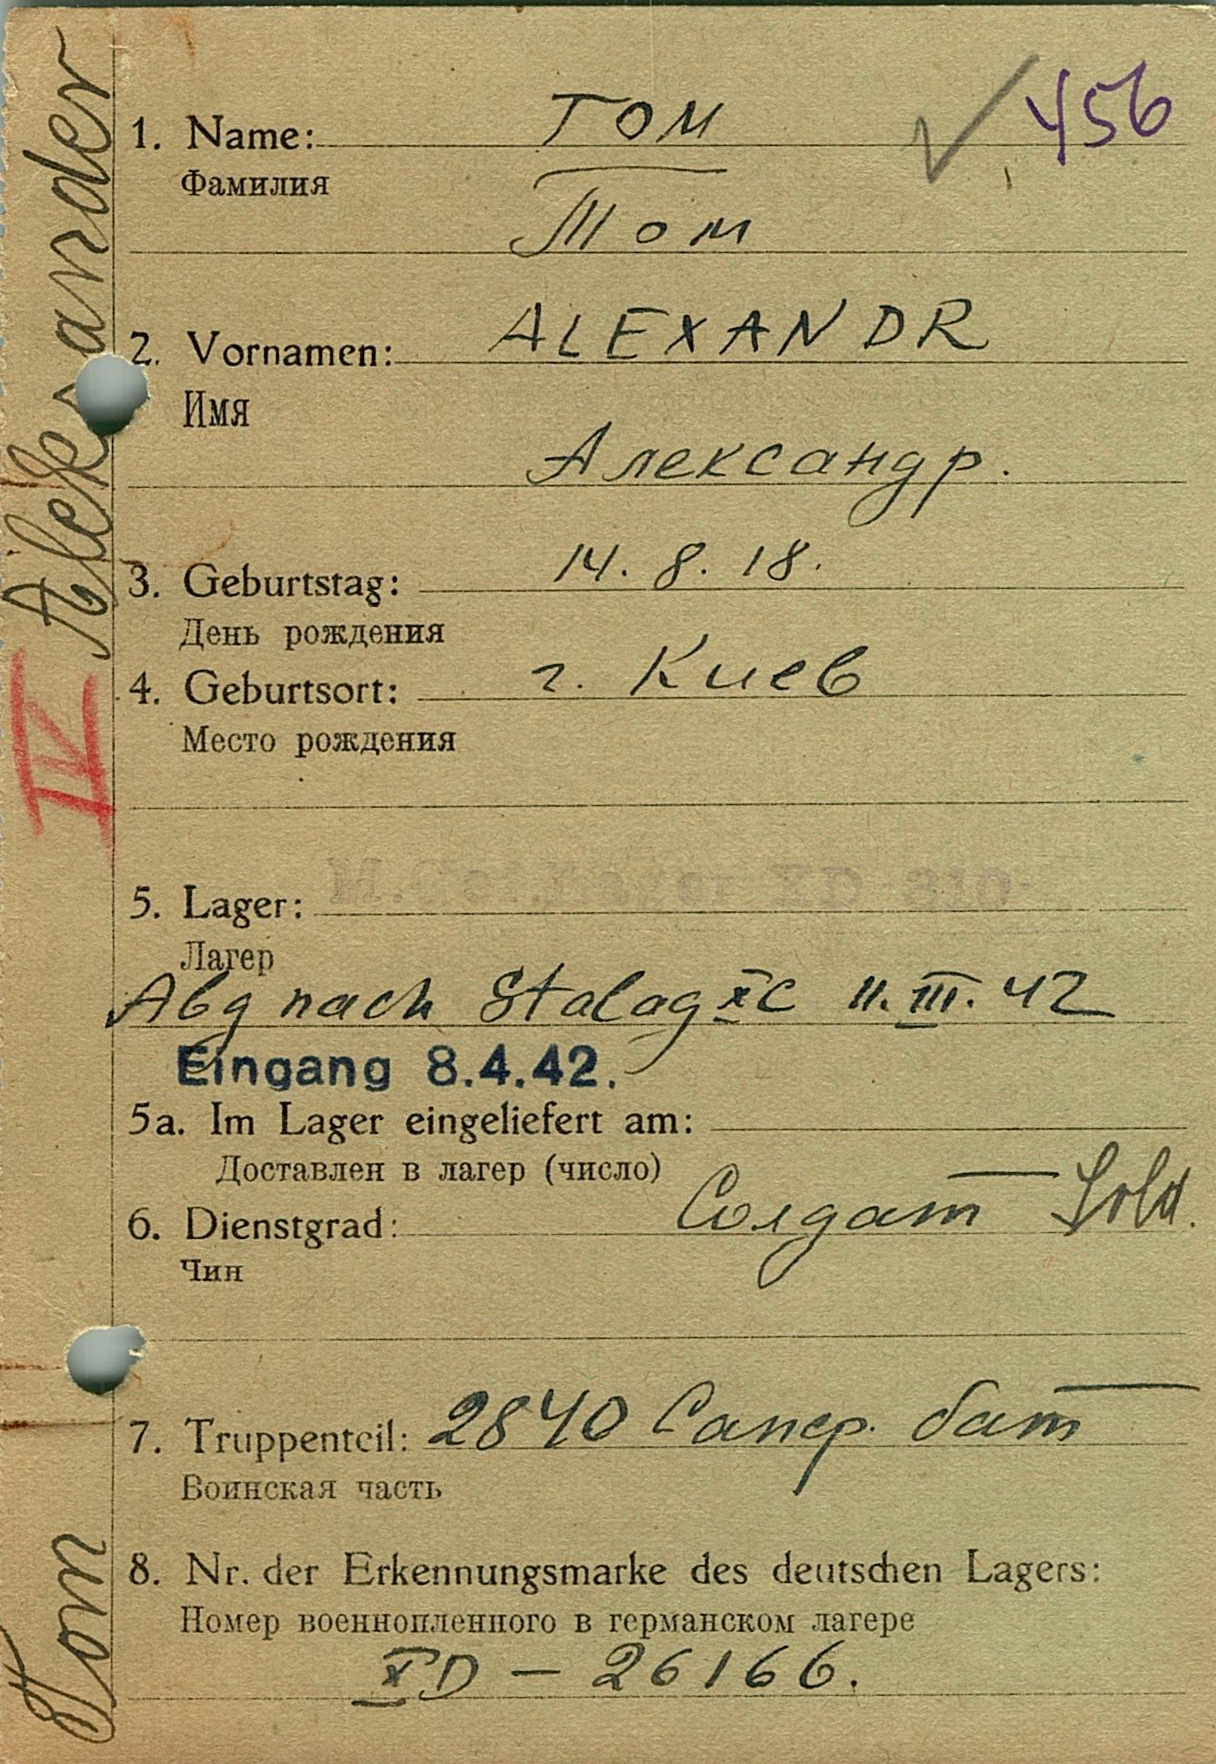 Tom Aleksander
IV
456
1. Name: TOM
Фамилия
Том
2. Vornamen: ALEXANDR
Имя
Александр.
3. Geburtstag: 14. 8. 18.
День рождения
4. Geburtsort: г. Киев
Место рождения
5. Lager:
Лагер
Abg nach Stalag XC 11. III. 42
Eingang 8.4.42.
5a. Im Lager eingeliefert am:
Доставлен в лагер (число)
6. Dienstgrad: Солдат Sold.
Чин
7. Truppenteil: 2840 Сапер. бат
Воинская часть
8. Nr. der Erkennungsmarke des deutschen Lagers:
Номер военнопленного в германском лагере
XD – 26166.